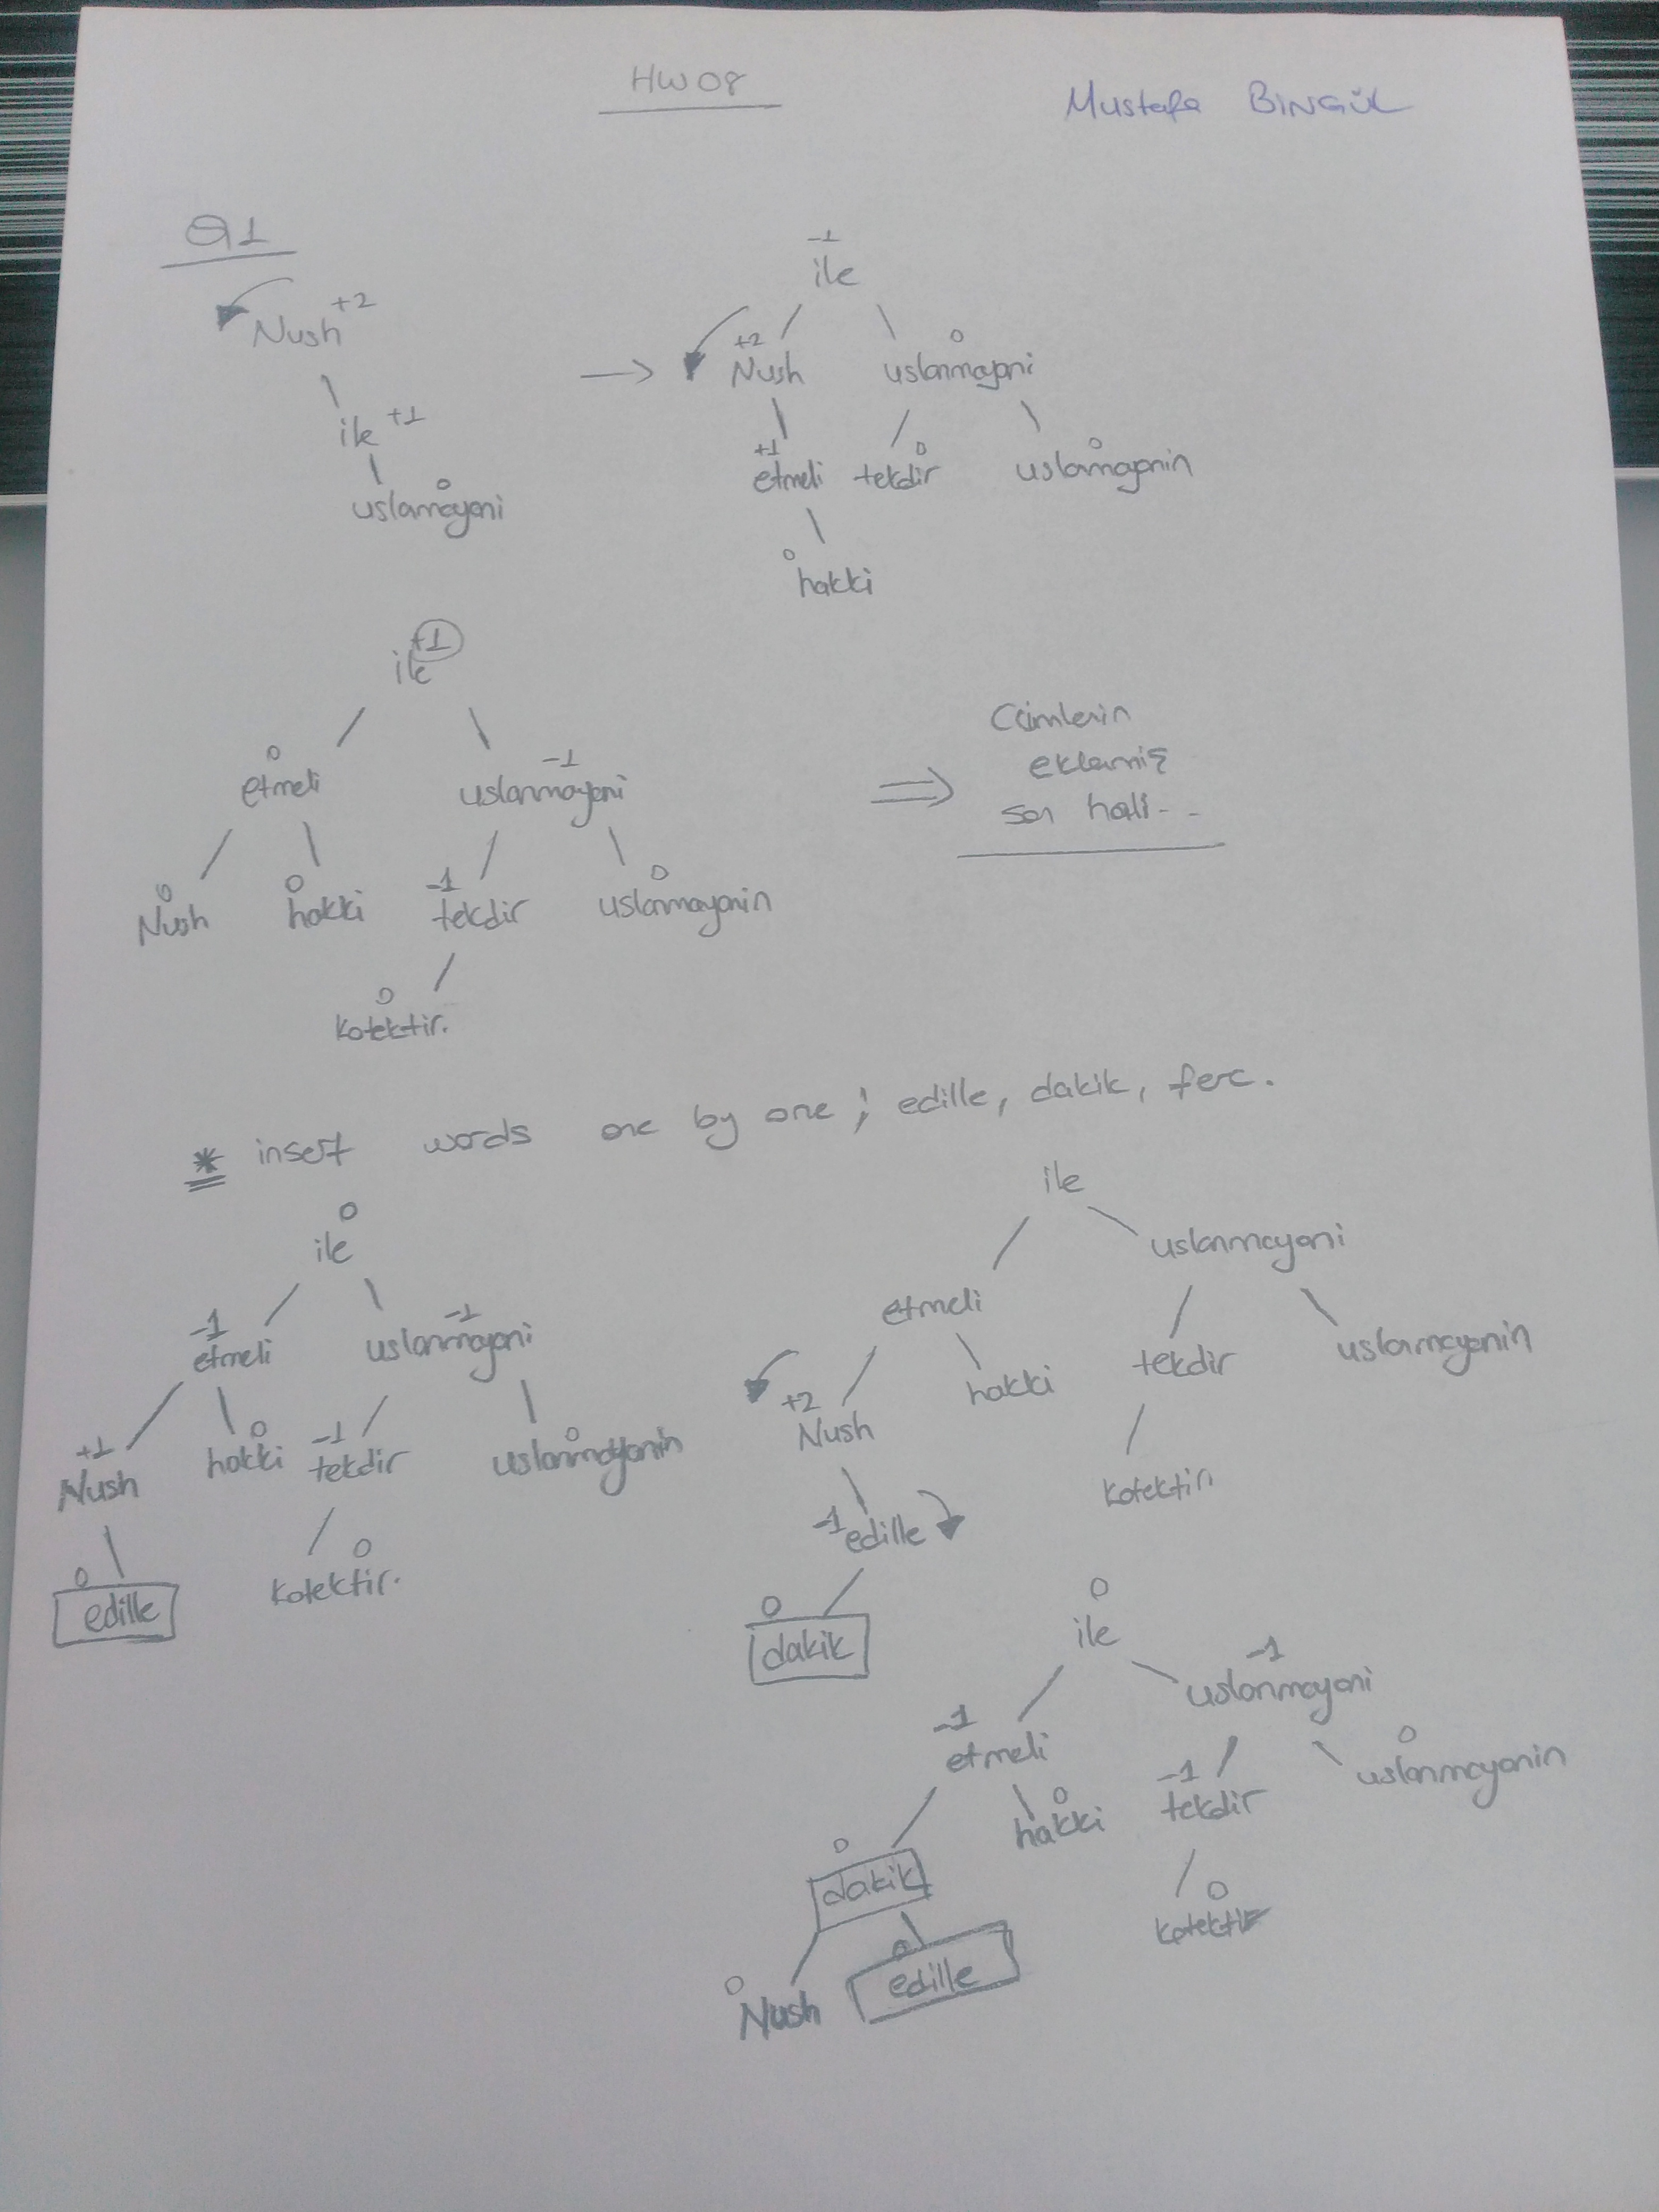 HW08
Mustafa BİNGÜL
Q1
Nush +2
ile +1
0
uslanmayani
-1
ile
+2 0
Nush uslanmayani
+1 0 0
etmeli tekdir uslanmayanin
0
hakki
+1
ile
0 -1
etmeli uslanmayani
0 0 -1 0
Nush hakki tekdir uslanmayanin
0
kotektir.
Cümlenin
eklenmiş
son hali..
* insert words one by one ; edille, dakik, ferc.
0
ile
-1 -1
etmeli uslanmayani
+1 0 -1 0
Nush hakki tekdir uslanmayanin
0 0
edille kotektir.
ile
uslanmayani
etmeli
hakki tekdir uslanmayanin
+2
Nush
kotektir.
-1 edille
0
dakik
0
ile
-1
uslanmayani
-1
etmeli
0 -1 0
hakki tekdir uslanmayanin
0
dakik
0
kotektir
0 0
Nush edille